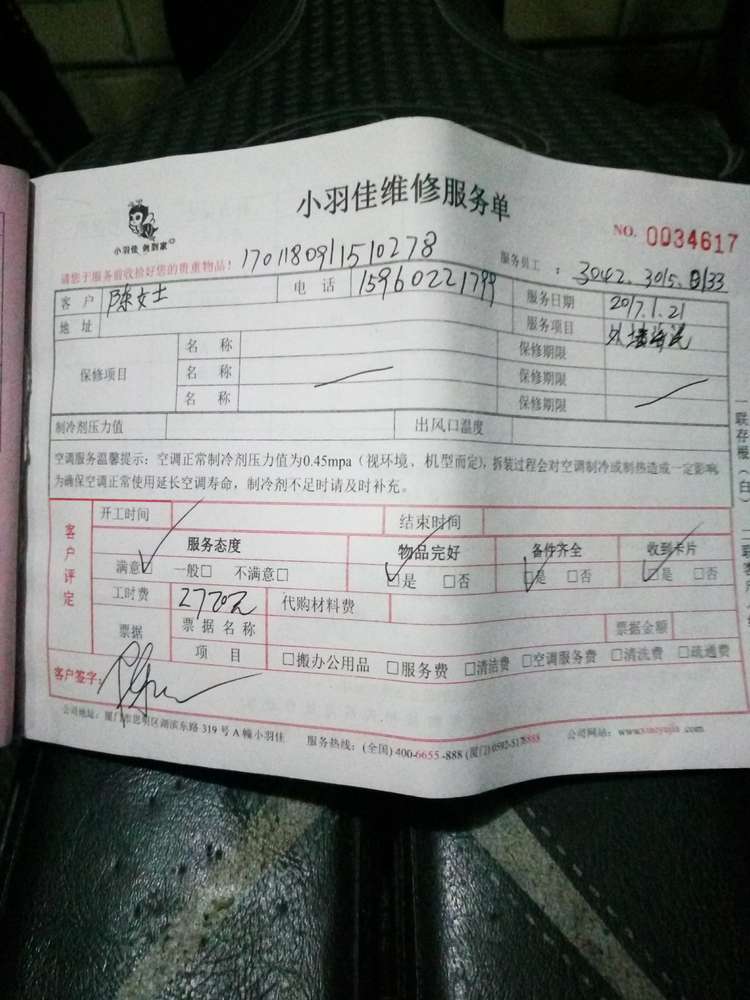 小羽佳维修服务单
NO. 0034617
小羽佳 俩到家
请您于服务前收捡好您的贵重物品! 1701180911510278 服务员工: 3042、3015、8133
客户 陈女士 电话 15960221799 服务日期 2017.1.21
地址 服务项目 外墙清洗
保修项目 名称 保修期限
名称 保修期限
名称 保修期限
制冷剂压力值 出风口温度
空调服务温馨提示:空调正常制冷剂压力值为0.45mpa(视环境、机型而定),拆装过程会对空调制冷或制热造成一定影响
为确保空调正常使用延长空调寿命,制冷剂不足时请及时补充。
客户评定
开工时间 结束时间
服务态度 物品完好 备件齐全 收到卡片
满意 一般□ 不满意□ □是 □否 □是 □否 □是 □否
工时费 2720元 代购材料费
票据 票据名称 票据金额
项目 □搬办公用品 □服务费 □清洁费 □空调服务费 □清洗费 □疏通费
客户签字:
公司地址:厦门市思明区湖滨东路319号A幢小羽佳 服务热线:(全国)400-6655-888 (厦门)0592-5178888 公司网站:www.xiaoyujia.com
一联存根(白)